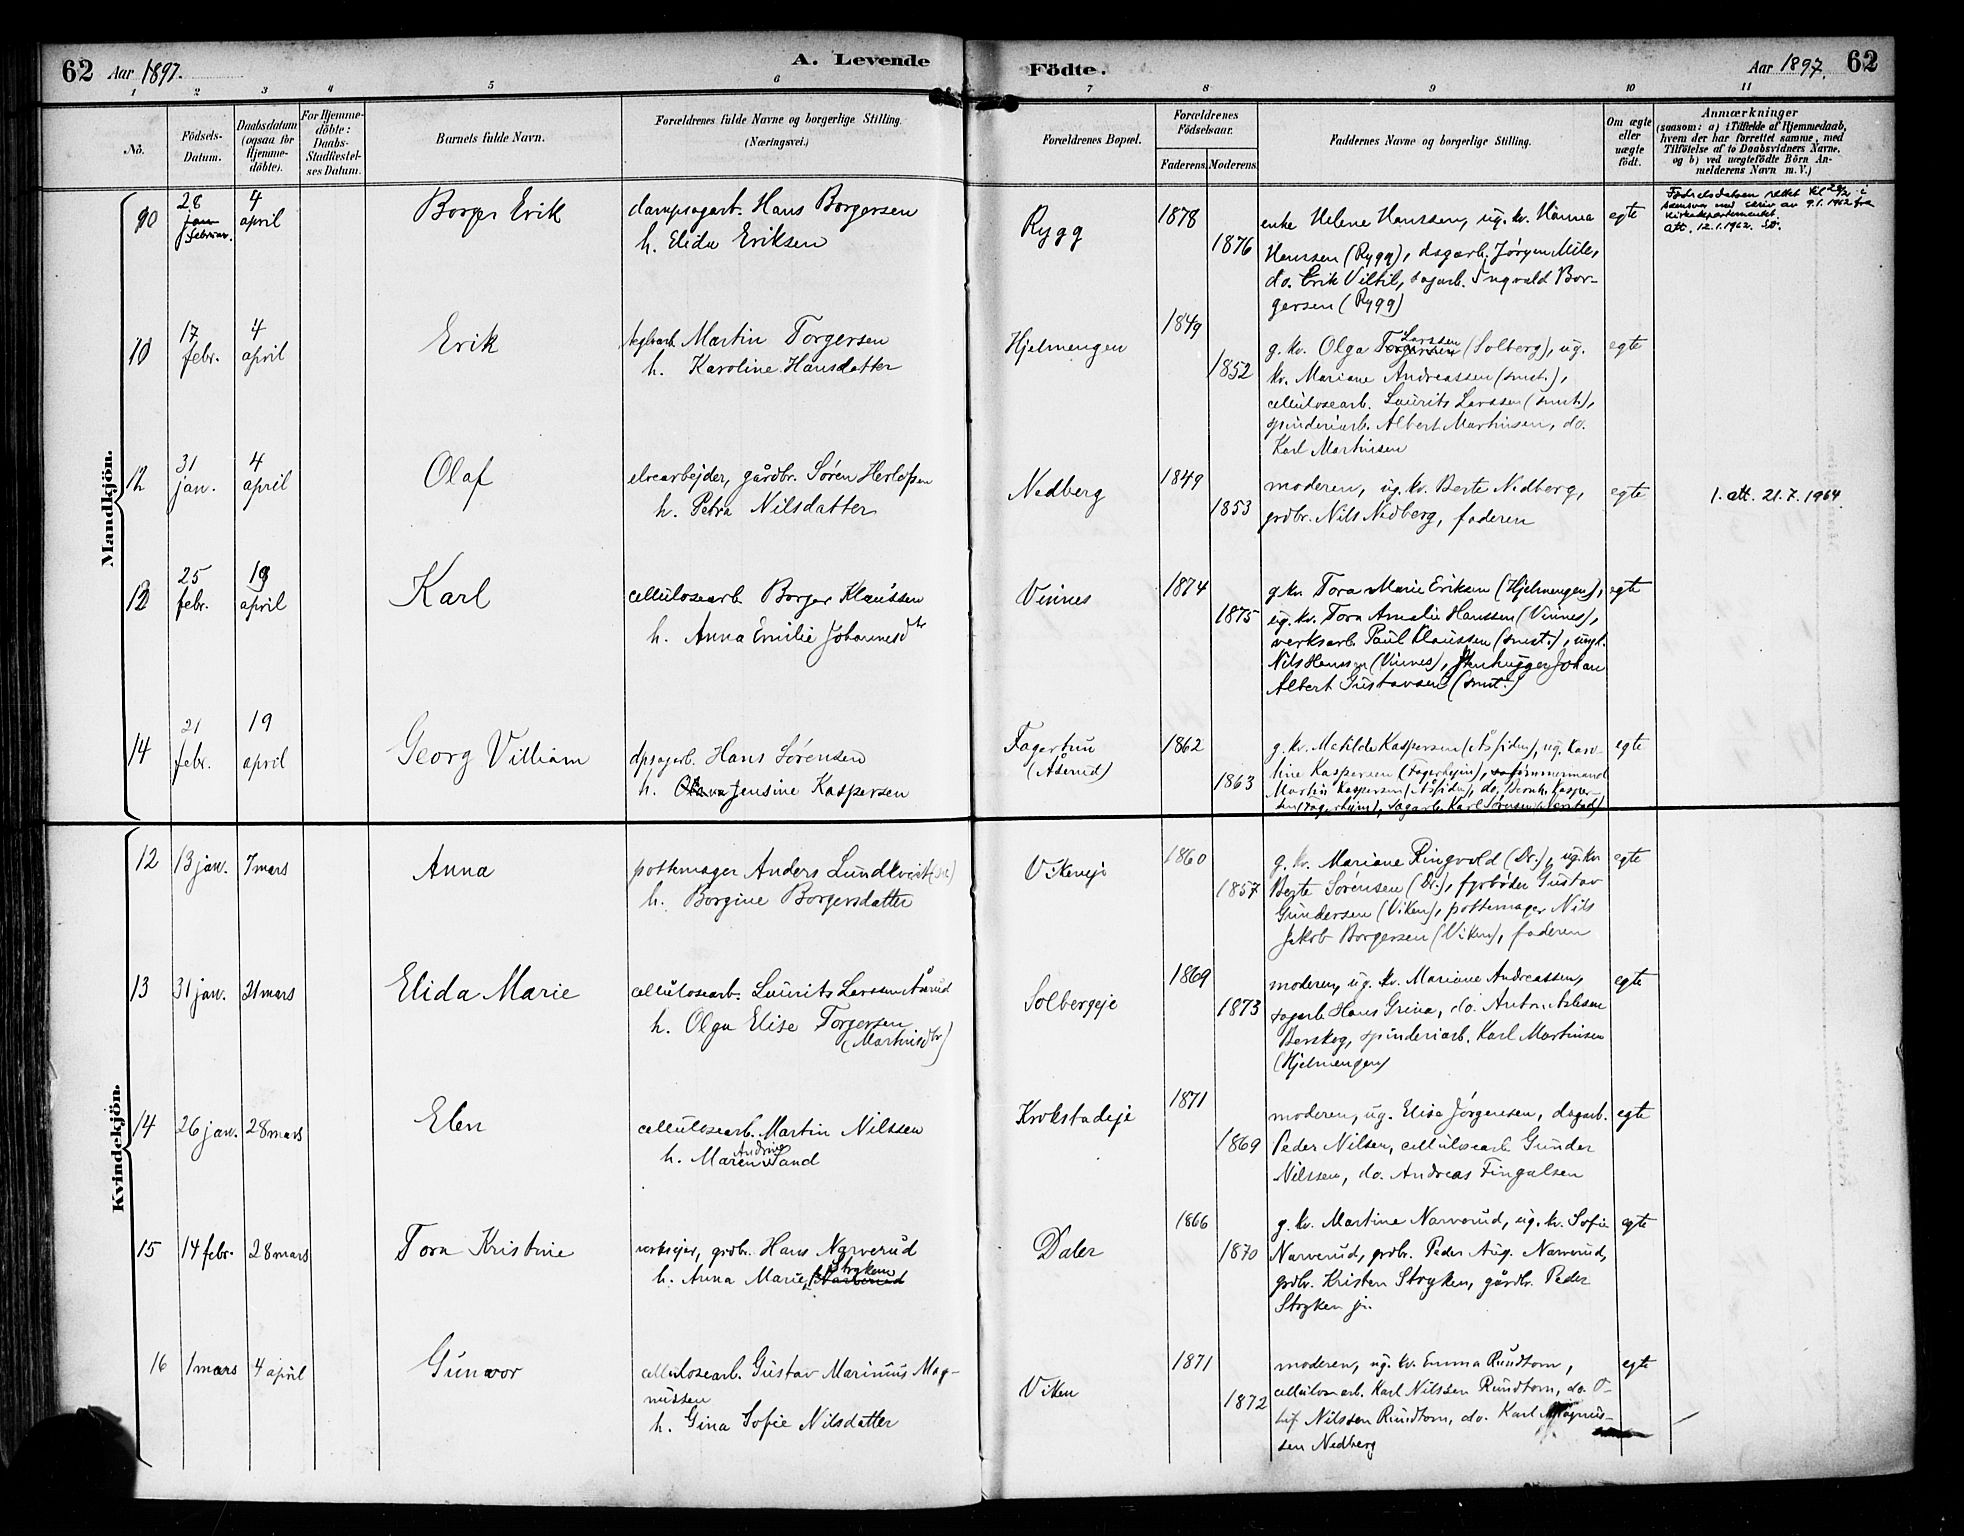 62 Aar 1897. A. Levende Fødte. Aar 1897. 62
1 2 3 4 5 6 7 8 9 10 11
No.
Födsels-
Datum.
Daabsdatum
(ogsaa for
Hjemme-
döbte).
For Hjemme-
döbte:
Daabs-
Stadfæstel-
ses Datum.
Barnets fulde Navn.
Forældrenes fulde Navne og borgerlige Stilling.
(Næringsvei.)
Forældrenes Bopæl.
Forældrenes
Födselsaar.
Faderens. Moderens.
Faddernes Navne og borgerlige Stilling.
Om ægte
eller
uægte
födt.
Anmærkninger
(saasom: a) i Tilfælde af Hjemmedaab,
hvem der har forrettet samme, med
Tilföielse af to Daabsvidners Navne,
og b) ved uægtefödte Börn An-
melderens Navn m. V.)
Mandkjön.
10
28
jan
februar.
4
april
Borger Erik
dampsagarb. Hans Borgersen
h. Elida Eriksen
Rygg
1878
1876
enke Helene Hanssen, ug. kv. Hanna
Hanssen (Rygg), dagarb. Jørgen Mile,
do. Erik Viltil, dagarb. Ingvald Bor-
gersen (Rygg)
egte
Fødselsdatoen rettet til 28/2 i
samsvar med skriv av 9.1.1962 fra
Kirkedepartementet.
att. 12.1.1962.
10
17
febr.
4
april
Erik
teglarb. Martin Torgersen
h. Karoline Hansdatter
Hjelmengen
1849
1852
g. kv. Olga Torgersen Larssen (Solberg), ug.
kv. Mariane Andreassen (smst.),
cellulosearb. Laurits Larssen (smst.),
spinderiarb. Albert Martinsen, do.
Karl Martinsen
egte
12
31
jan.
4
april
Olaf
elvearbejder, gårdbr. Søren Herlofsen
h. Petra Nilsdatter
Nedberg
1849
1853
moderen, ug. kv. Berte Nedberg,
grdbr. Nils Nedberg, faderen
egte
1. att. 21.7.1964.
12
25
febr.
19
april
Karl
cellulosearb. Borger Klaussen
h. Anna Emilie Johannesdtr
Vinnes
1874
1875
g. kv. Tora Marie Eriksen (Hjelmengen),
ug. kv. Tora Amalie Hanssen (Vinnes),
verksarb. Paul Klaussen (smst.), ungk.
Nils Hanssen (Vinnes), stenhugger Johan
Albert Gustavsen (smst.)
egte
14
21
febr.
19
april
Georg Villiam
dpsagarb. Hans Sørensen
h. Jensine Kaspersen
Fagertun
(Åserud)
1862
1863
g. kv. Matilde Kaspersen (Åsfiden), ug. Karo-
line Kaspersen (Fagerheim), tømmermand
Martin Kaspersen (Åsfiden), do. Bernh. Kasper-
sen (Fagerheim), sagarb. Karl Sørensen
egte
Kvindekjön.
12
13 jan.
7 mars
Anna
pottemager Anders Lundkvist (sv.)
h. Borgine Borgersdatter
Vikeneje
1860
1857
g. kv. Mariane Ringvold (Dr.), ug. kv
Berte Sørensen (Dr.), fyrbøder Gustav
Gundersen (Viken), pottemager Nils
Jakob Borgersen (Viken), faderen
egte
13
31 jan.
21 mars
Elida Marie
cellulosearb. Laurits Larssen Åserud
h. Olga Elise Torgersen
(Martinsdtr)
Solbergeje
1869
1873
moderen, ug. kv. Mariane Andreassen,
sagarb. Hans Grina, do. Anton Axelsen
Berskog, spinderiarb. Karl Martinsen
(Hjelmengen)
egte
14
26 jan.
28 mars
Elen
cellulosearb. Martin Nilssen
h. Maren Andrine Sand
Krokstadeje
1871
1869
moderen, ug. Elise Jørgensen, dagarb.
Peder Nilsen, cellulosearb. Gunder
Nilssen, do. Andreas Fingalsen
egte
15
14 febr.
28 mars
Tora Kristine
verksejer, grdbr. Hans Narverud
h. Anna Marie Narverud Stryken
Daler
1866
1870
g. kv. Martine Narverud, ug. kv. Sofie
Narverud, grdbr. Peder Aug. Narverud,
grdbr. Kristen Stryken, gårdbr. Peder
Stryken jr.
egte
16
1 mars
4 april
Gunvor
cellulosearb. Gustav Marinius Mag-
nussen
h. Gina Sofie Nilsdatter
Viken
1871
1872
moderen, ug. kv. Emma Rundtom,
cellulosearb. Karl Nilssen Rundtom, do. O-
luf Nilssen Rundtom, do. Karl Magnus-
sen Nedberg
egte